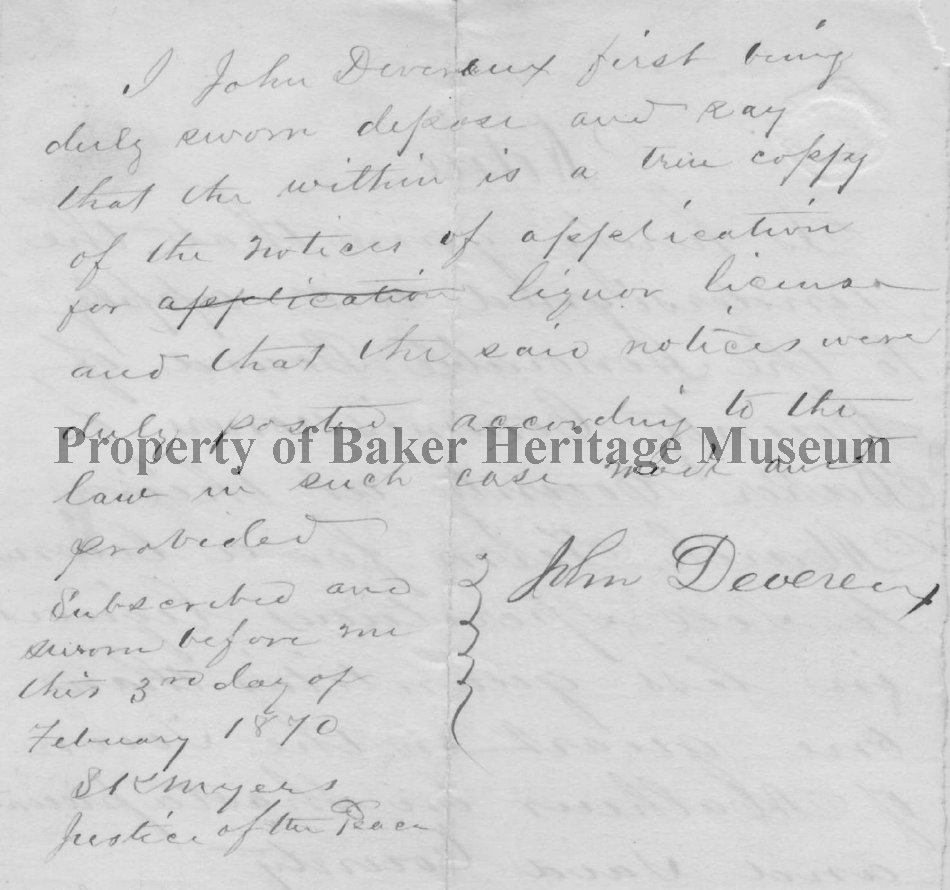 I John Devereux first being
duly sworn depose and say
that the within is a true coppy
of the notices of application
for application liquor license
and that the said notices were
duly posted according to the
Property of Baker Heritage Museum
law in such case mad and
provided
John Devereux
Subscribed and
sworn before me
this 3rd day of
Febuary 1870
S K Myers
Justice of the Peace